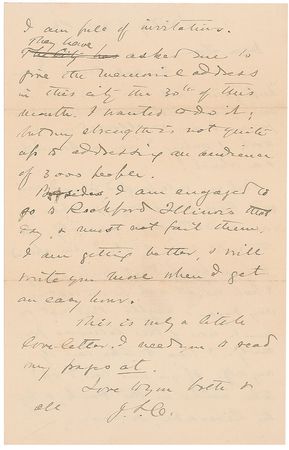 I am full of invitations.
They have
The City has asked me to
give the memorial address
in this city the 30th of this
month. I wanted to do it;
but my strength is not quite
up to addressing an audience
of 3000 people.
Besides I am engaged to
go to Rockford Illinois that
day, & must not fail them.
I am getting better, & will
write you more when I get
an easy hour.
This is only a little
love-letter. I need you to read
my pages at.
Love to you both &
all J. L.